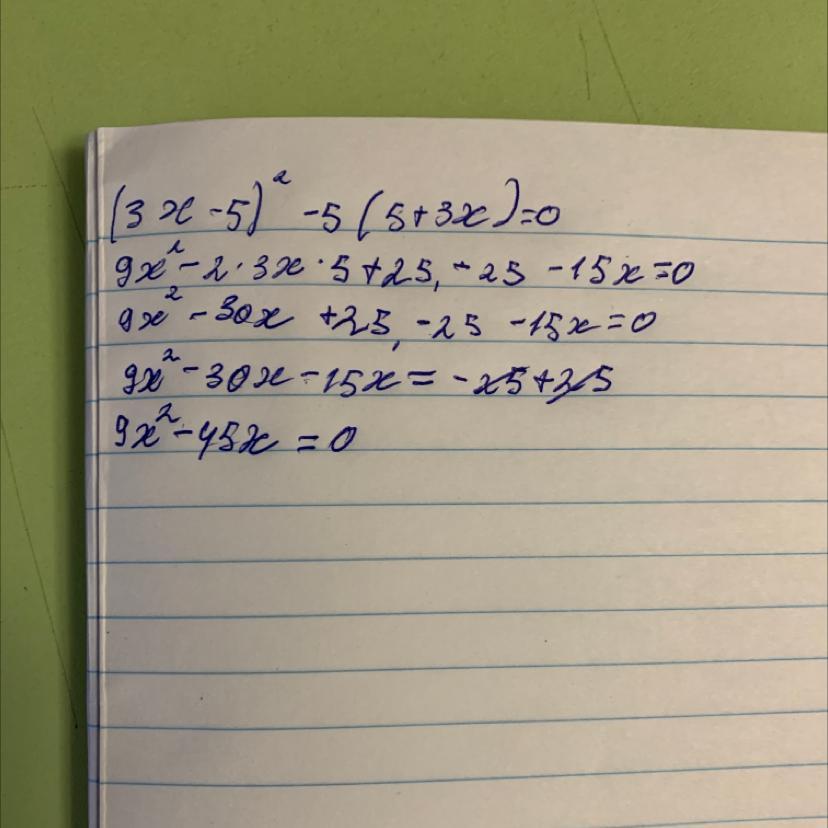 (3x-5)² -5(5+3x)=0
9x²-2·3x·5+25,-25-15x=0
9x²-30x+25,-25-15x=0
9x²-30x-15x=-25+25
9x²-45x=0